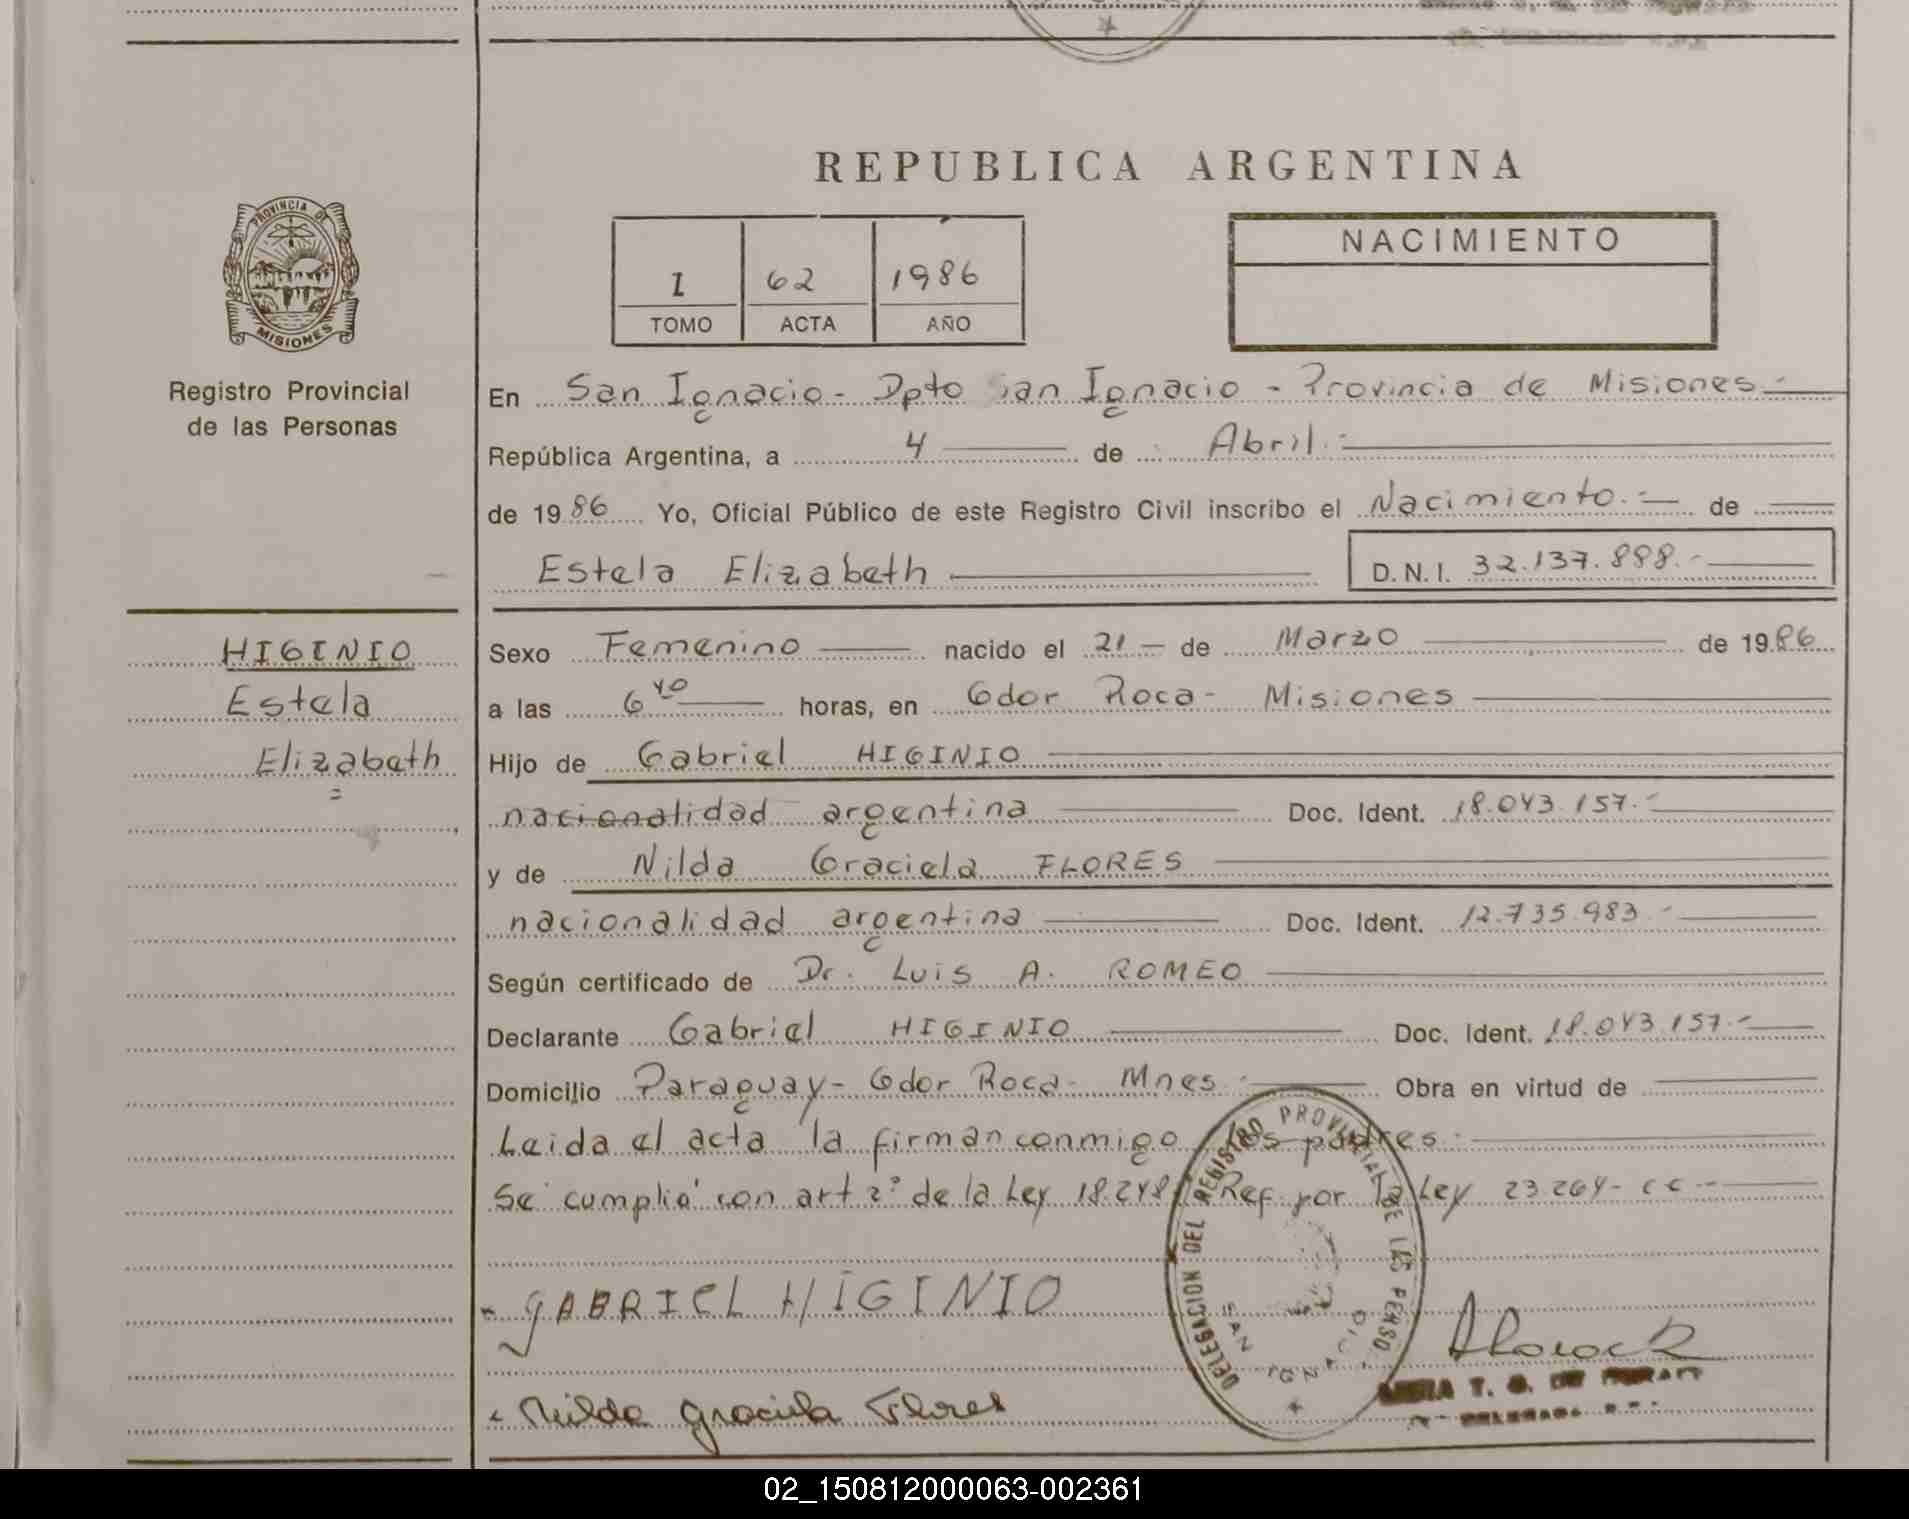 REPUBLICA ARGENTINA
PROVINCIA DE
MISIONES
Registro Provincial
de las Personas
I 62 1986
TOMO ACTA AÑO
NACIMIENTO
En San Ignacio - Dpto San Ignacio - Provincia de Misiones.-
República Argentina, a 4 de Abril.-
de 1986 Yo, Oficial Público de este Registro Civil inscribo el Nacimiento.- de
Estela Elizabeth D.N.I. 32.137.888.-
HIGINIO
Estela
Elizabeth
Sexo Femenino nacido el 21 - de Marzo de 1986
a las 6 horas, en Gdor Roca - Misiones
Hijo de Gabriel HIGINIO
nacionalidad argentina Doc. Ident. 18.043.157.-
y de Nilda Graciela FLORES
nacionalidad argentina Doc. Ident. 12.735.983.-
Según certificado de Dr. Luis A. ROMEO
Declarante Gabriel HIGINIO Doc. Ident. 18.043.157.-
Domicilio Paraguay - Gdor Roca - Mnes.- Obra en virtud de
Leida el acta la firman conmigo los padres.-
Se cumplió con art 2° de la Ley 18.248 Ref. por la Ley 23.264-cc.-
- GABRIEL HIGINIO
Nilda Graciela Flores
DELEGACION DEL REGISTRO PROVINCIAL DE LAS PERSO.
SAN IGNACIO
T. G. DE
02_150812000063-002361